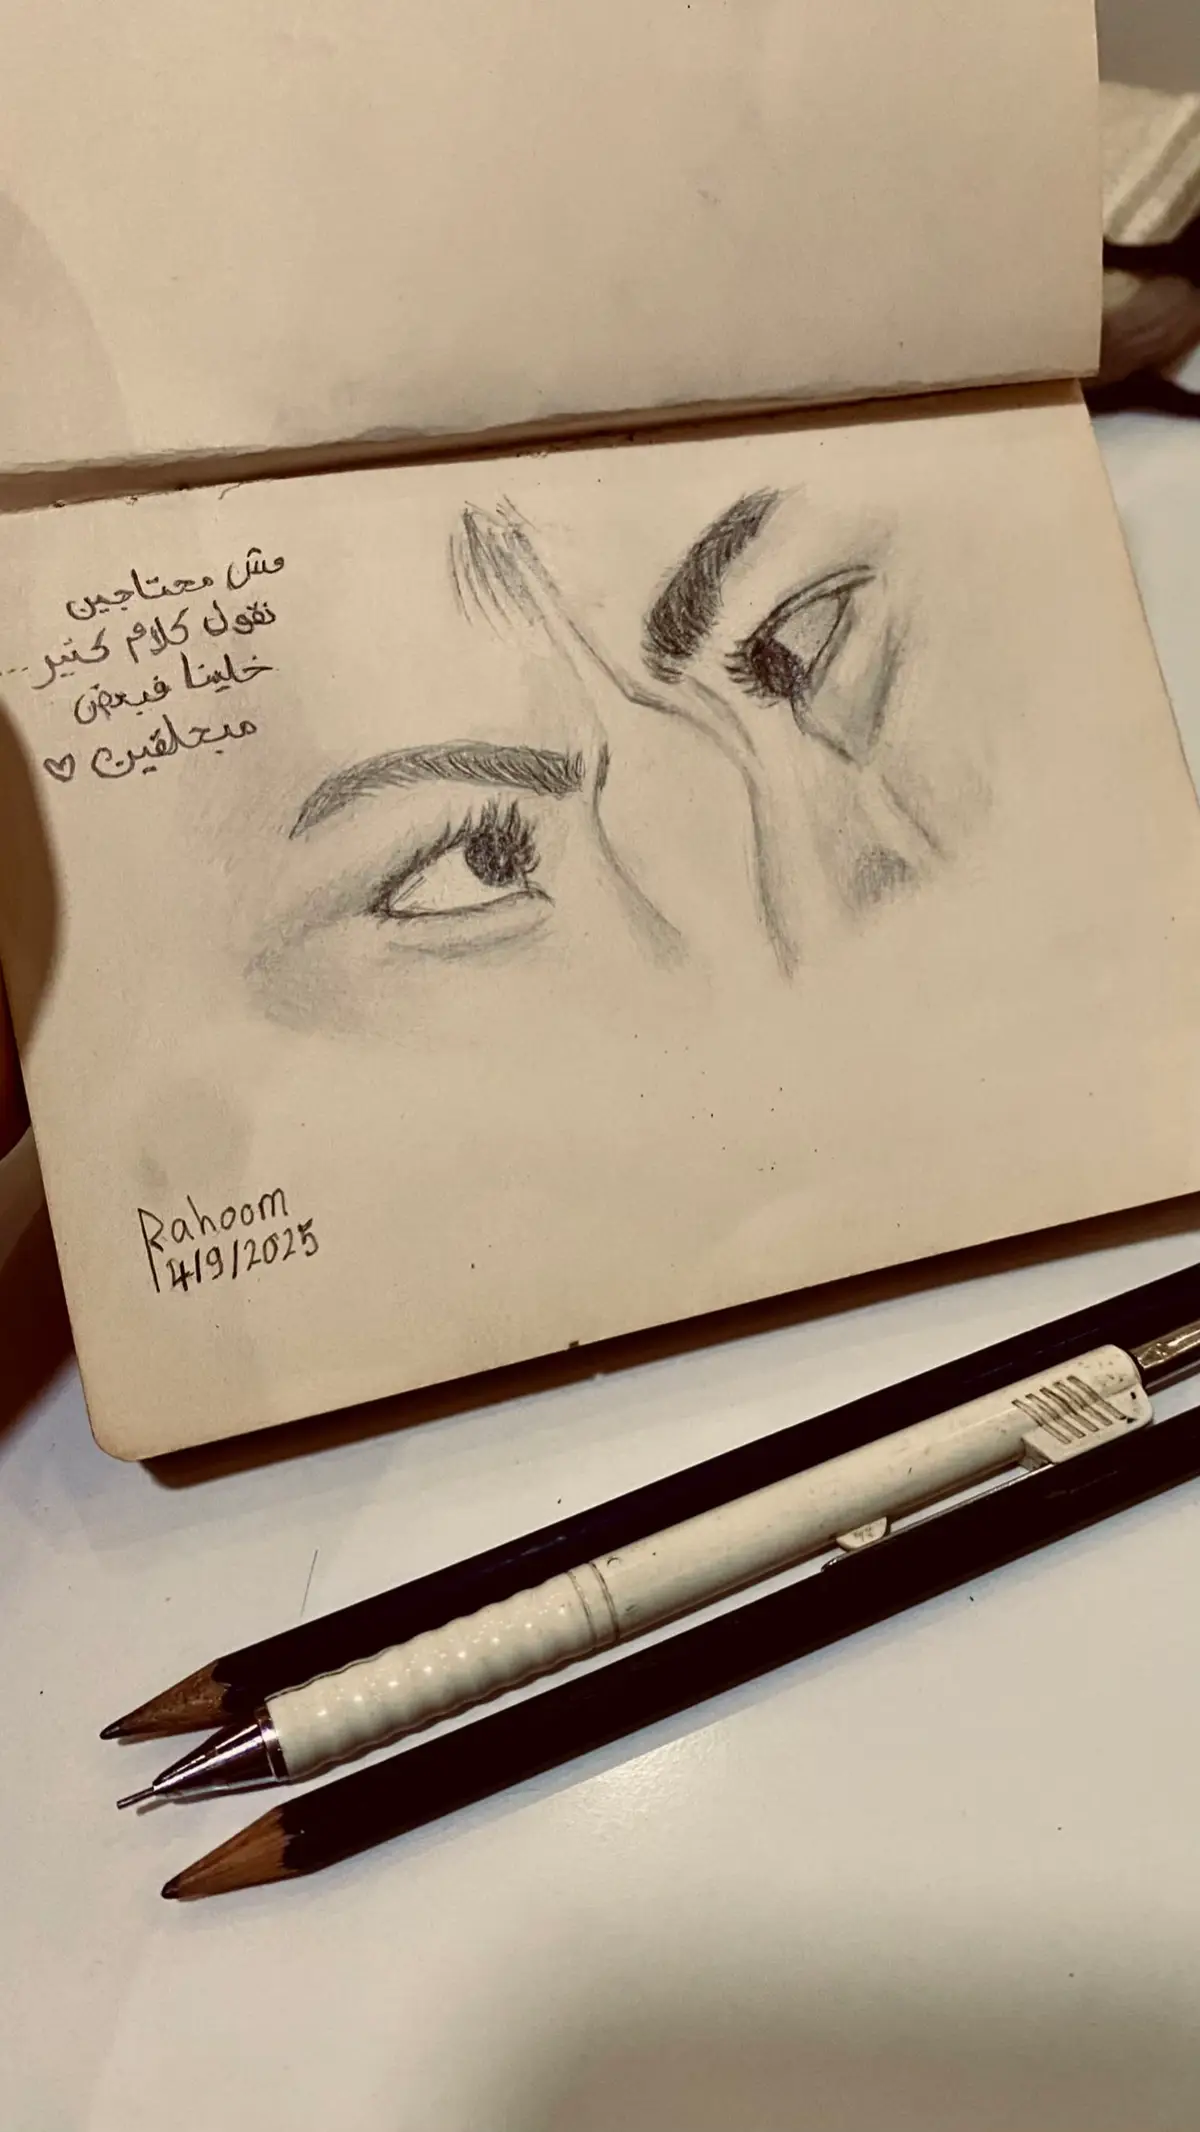 مش محتاجين
نقول كلام كتير...
خلينا فبعض
مبحلقين ♡
Rahoom
14/9/2025